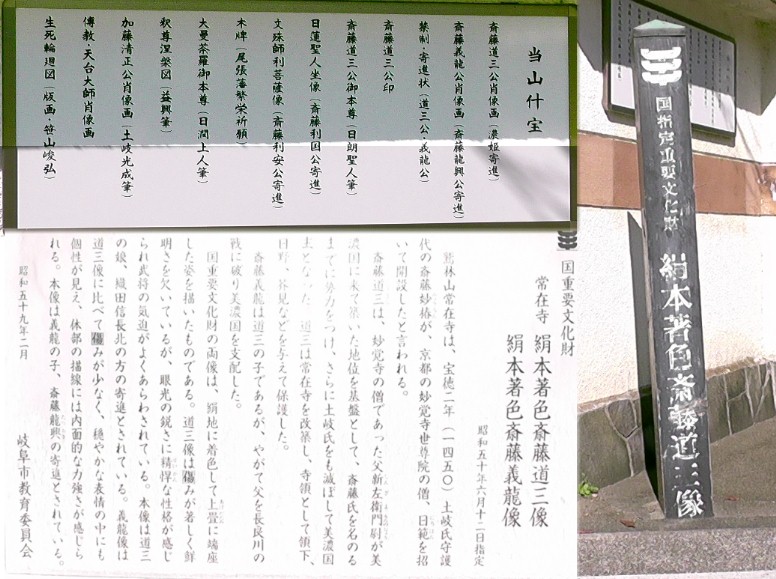 当山什宝
斎藤道三公肖像画（濃姫寄進）
斎藤義龍公肖像画（斎藤龍興公寄進）
禁制・寄進状（道三公・義龍公）
斎藤道三公印
斎藤道三公御本尊（日朗聖人筆）
日蓮聖人坐像（斎藤利国公寄進）
文殊師利菩薩像（斎藤利安公寄進）
木牌（尾張藩繁栄祈願）
大曼荼羅御本尊（日潤上人筆）
釈尊涅槃図（益興筆）
加藤清正公肖像画（土岐光成筆）
傳教・天台大師肖像画
生死輪廻図（版画・笹山峻弘）
国重要文化財
常在寺 絹本著色斎藤道三像
絹本著色斎藤義龍像
昭和五十年六月十二日指定
鷲林山常在寺は、宝徳二年（一四五〇）土岐氏守護
代の斎藤妙椿が、京都の妙覚寺世尊院の僧、日範を招
いて開設したと言われる。
斎藤道三は、妙覚寺の僧であった父新左衛門尉が美
濃国に来て築いた地位を基盤として、斎藤氏を名のる
までに勢力をつけ、さらに土岐氏をも滅ぼして美濃国
主となった。道三は常在寺を改築し、寺領として領下、
日野、芥見などを与えて保護した。
斎藤義龍は道三の子であるが、やがて父を長良川の
戦に破り美濃国を支配した。
国重要文化財の両像は、絹地に着色して上畳に端座
した姿を描いたものである。道三像は傷みが著しく鮮
明さを欠いているが、眼光の鋭さに精悍な性格が感じ
られ武将の気迫がよくあらわされている。本像は道三
の娘、織田信長北の方の寄進とされている。義龍像は
道三像に比べて傷みが少なく、穏やかな表情の中にも
個性が見え、体部の描線には内面的な力強さが感じら
れる。本像は義龍の子、斎藤龍興の寄進とされている。
昭和五十九年二月
岐阜市教育委員会
国指定重要文化財
絹本著色斎藤道三像